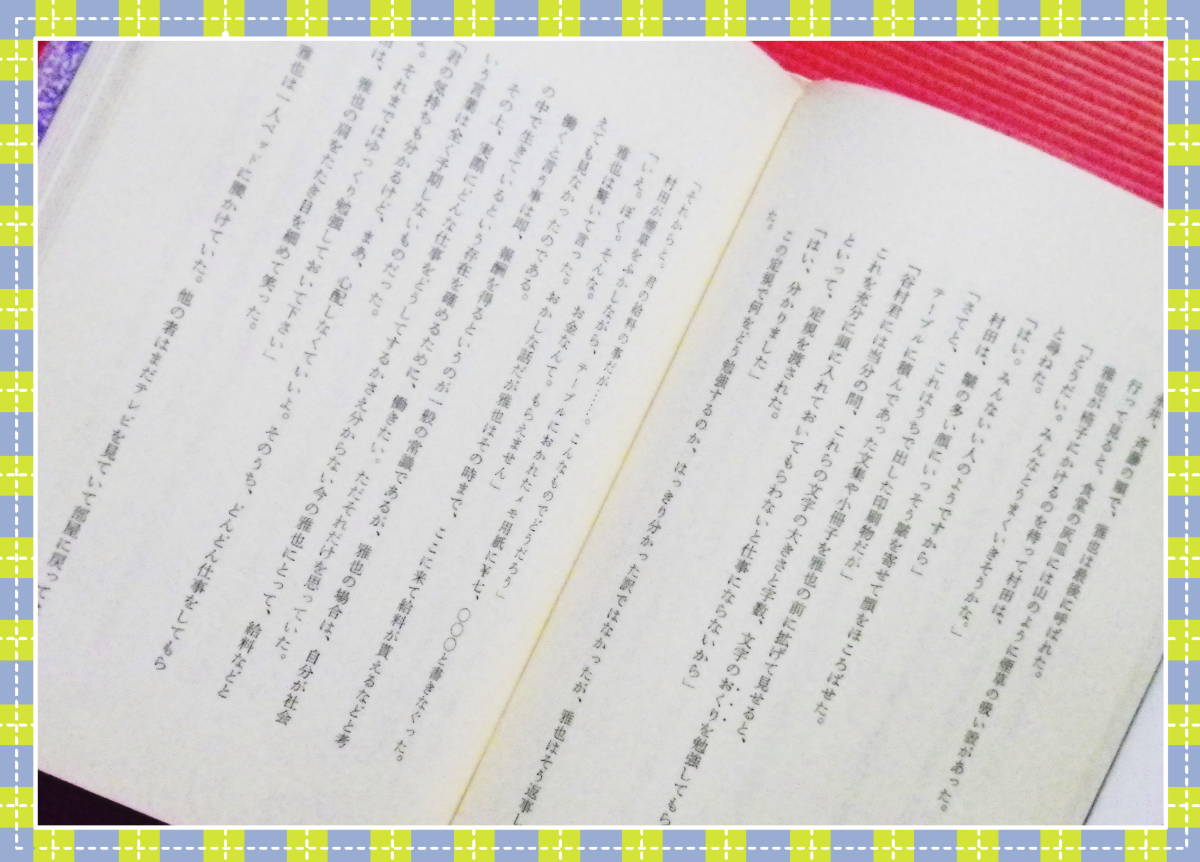 斉藤の順で、雅也は最後に呼ばれた。
行って見ると、食堂の灰皿には山のように煙草の吸い殻があった。
雅也が椅子にかけるのを待って村田は、
「どうだい。みんなとうまくいきそうかな。」
と尋ねた。
「はい。みんないい人のようですから」
村田は、皺の多い顔にいっそう皺を寄せて顔をほころばせた。
「さてと、これはうちで出した印刷物だが」
テーブルに積んであった文集や小冊子を雅也の前に拡げて見せると、
「谷村君には当分の間、これらの文字の大きさと字数、文字のおくりを勉強してもら
これを充分に頭に入れておいてもらわないと仕事にならないから」
といって、定規を渡された。
「はい、分かりました」
この定規で何をどう勉強するのか、はっきり分かった訳ではなかったが、雅也はそう返事し
た。
「それからと。君の給料の事だが……。こんなものでどうだろう」
村田が煙草をふかしながら、テーブルにおかれたメモ用紙に￥七、〇〇〇と書きなぐった。
「いえ。ぼく。そんな。お金なんて。もらえません」
雅也は驚いて言った。おかしな話だが雅也はその時まで、ここに来て給料が貰えるなどと考
えても見なかったのである。
働くと言う事は即、報酬を得るというのが一般の常識であるが、雅也の場合は、自分が社会
の中で生きているという存在を確めるために、働きたい。ただそれだけを思っていた。
その上、実際にどんな仕事をどうしてするかさえ分からない今の雅也にとって、給料などと
いう言葉は全く予期しないものだった。
「君の気持も分かるけど、まあ、心配しなくていいよ。そのうち、どんどん仕事をしてもら
それまではゆっくり勉強しておいて下さい」
は、雅也の肩をたたき目を細めて笑った。
雅也は一人ベッドに腰かけていた。他の者はまだテレビを見ていて部屋に戻って